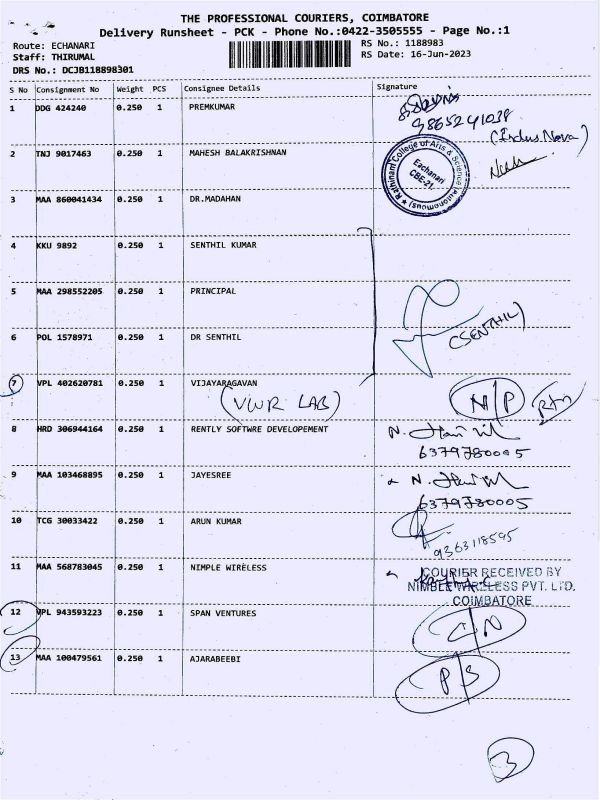 THE PROFESSIONAL COURIERS, COIMBATORE
Delivery Runsheet - PCK - Phone No.:0422-3505555 - Page No.:1
Route: ECHANARI RS No.: 1188983
Staff: THIRUMAL RS Date: 16-Jun-2023
DRS No.: DCJB118898301
S No Consignment No Weight PCS Consignee Details Signature
1 DDG 424240 0.250 1 PREMKUMAR
9865241038
(Indus Nova)
2 TNJ 9017463 0.250 1 MAHESH BALAKRISHNAN
Rathinam College of Arts & Science (Autonomous)
Eachanari
CBE-21.
3 MAA 860041434 0.250 1 DR.MADAHAN
4 KKU 9892 0.250 1 SENTHIL KUMAR
5 MAA 298552205 0.250 1 PRINCIPAL
6 POL 1578971 0.250 1 DR SENTHIL
(SENTHIL)
7 VPL 402620781 0.250 1 VIJAYARAGAVAN
(VWR LAB) N/P
8 HRD 306944164 0.250 1 RENTLY SOFTWRE DEVELOPEMENT
6379780005
9 MAA 103468895 0.250 1 JAYESREE
6379780005
10 TCG 30033422 0.250 1 ARUN KUMAR
9363118595
11 MAA 568783045 0.250 1 NIMPLE WIRELESS
COURIER RECEIVED BY
NIMBLE WIRELESS PVT. LTD.
COIMBATORE
12 VPL 943593223 0.250 1 SPAN VENTURES
C/N
13 MAA 100479561 0.250 1 AJARABEEBI
P/S
3